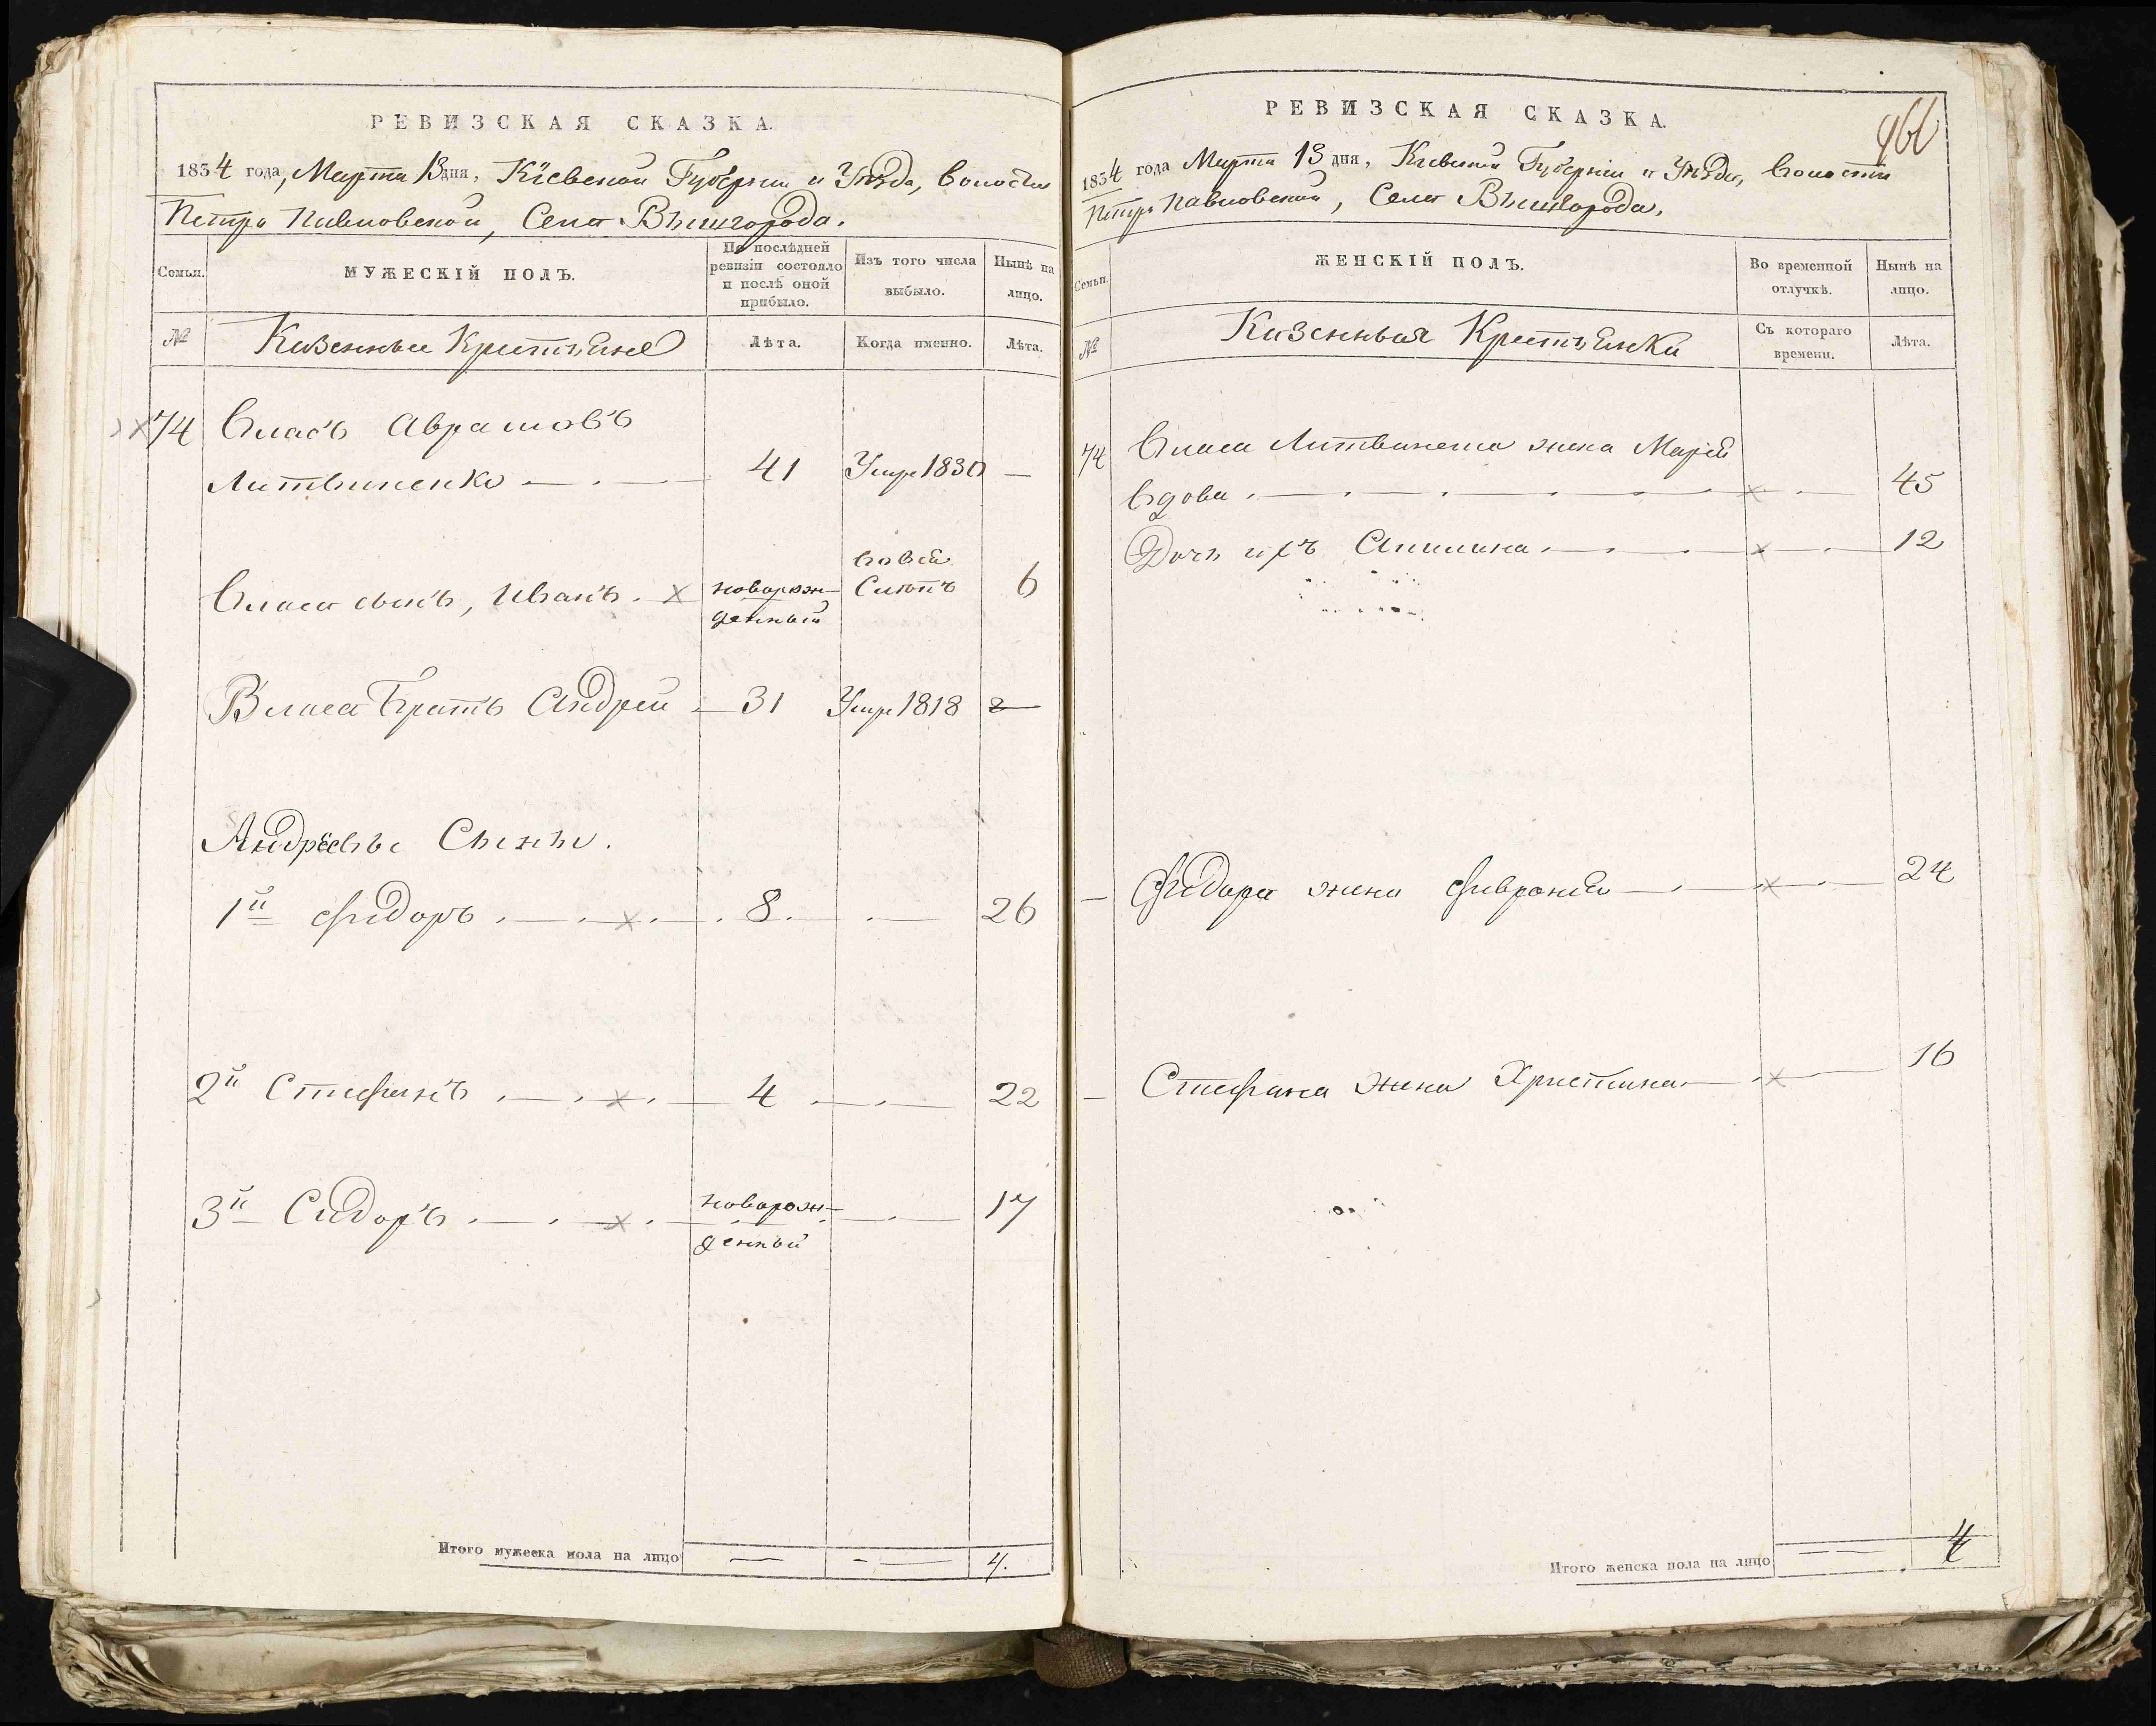 РЕВИЗСКАЯ СКАЗКА.
1834 года, Марта 13 дня, Кіевской Губерніи и Уѣзда, волости
Петро Павловской, Села Вышгорода.
Семьи.
МУЖЕСКІЙ ПОЛЪ.
По послѣдней
ревизіи состояло
и послѣ оной
прибыло.
Изъ того числа
выбыло.
Нынѣ на
лицо.
№
Казенные Крестьяне
Лѣта.
Когда именно.
Лѣта.
74 Власъ Аврамовъ
Литвиненко 41 Умре 1830 —
Власа сынъ, Иванъ. х новорож-
денный
6
Власа Братъ Андрей 31 Умре 1818 —
Андреевы Сыны.
1й Фидоръ х 8. — 26
2й Стефанъ х 4 — 22
3й Сидоръ х новорож-
денный
— 17
Итого мужеска пола на лицо — — 4.
РЕВИЗСКАЯ СКАЗКА.
466
1834 года Марта 13 дня, Кіевской Губерніи и Уѣзда, волости
Петро Павловской, Села Вышгорода.
Семьи.
ЖЕНСКІЙ ПОЛЪ.
Во временной
отлучкѣ.
Нынѣ на
лицо.
№
Казенныя Крестьянки
Съ котораго
времени.
Лѣта.
74 Власа Литвиненка жена Марія
вдова х 45
Дочь ихъ х 12
— Фидора жена Февронія х 24
— Стефана жена Христина х 16
Итого женска пола на лицо — 4